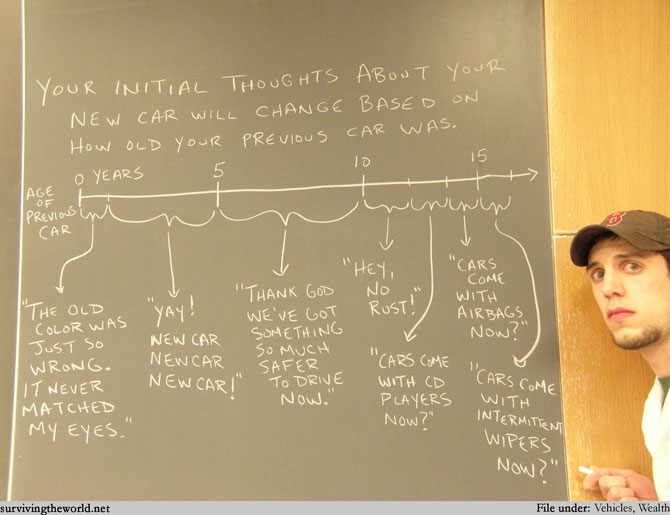 YOUR INITIAL THOUGHTS ABOUT YOUR
NEW CAR WILL CHANGE BASED ON
HOW OLD YOUR PREVIOUS CAR WAS.
0 YEARS
5
10
15
AGE
OF
PREVIOUS
CAR
"THE OLD
COLOR WAS
JUST SO
WRONG.
IT NEVER
MATCHED
MY EYES."
"YAY!
NEW CAR
NEW CAR
NEW CAR!"
"THANK GOD
WE'VE GOT
SOMETHING
SO MUCH
SAFER
TO DRIVE
NOW."
"HEY,
NO
RUST!"
"CARS COME
WITH CD
PLAYERS
NOW?"
"CARS
COME
WITH
AIRBAGS
NOW?"
"CARS COME
WITH
INTERMITTENT
WIPERS
NOW?"
B
survivingtheworld.net
File under: Vehicles, Wealth